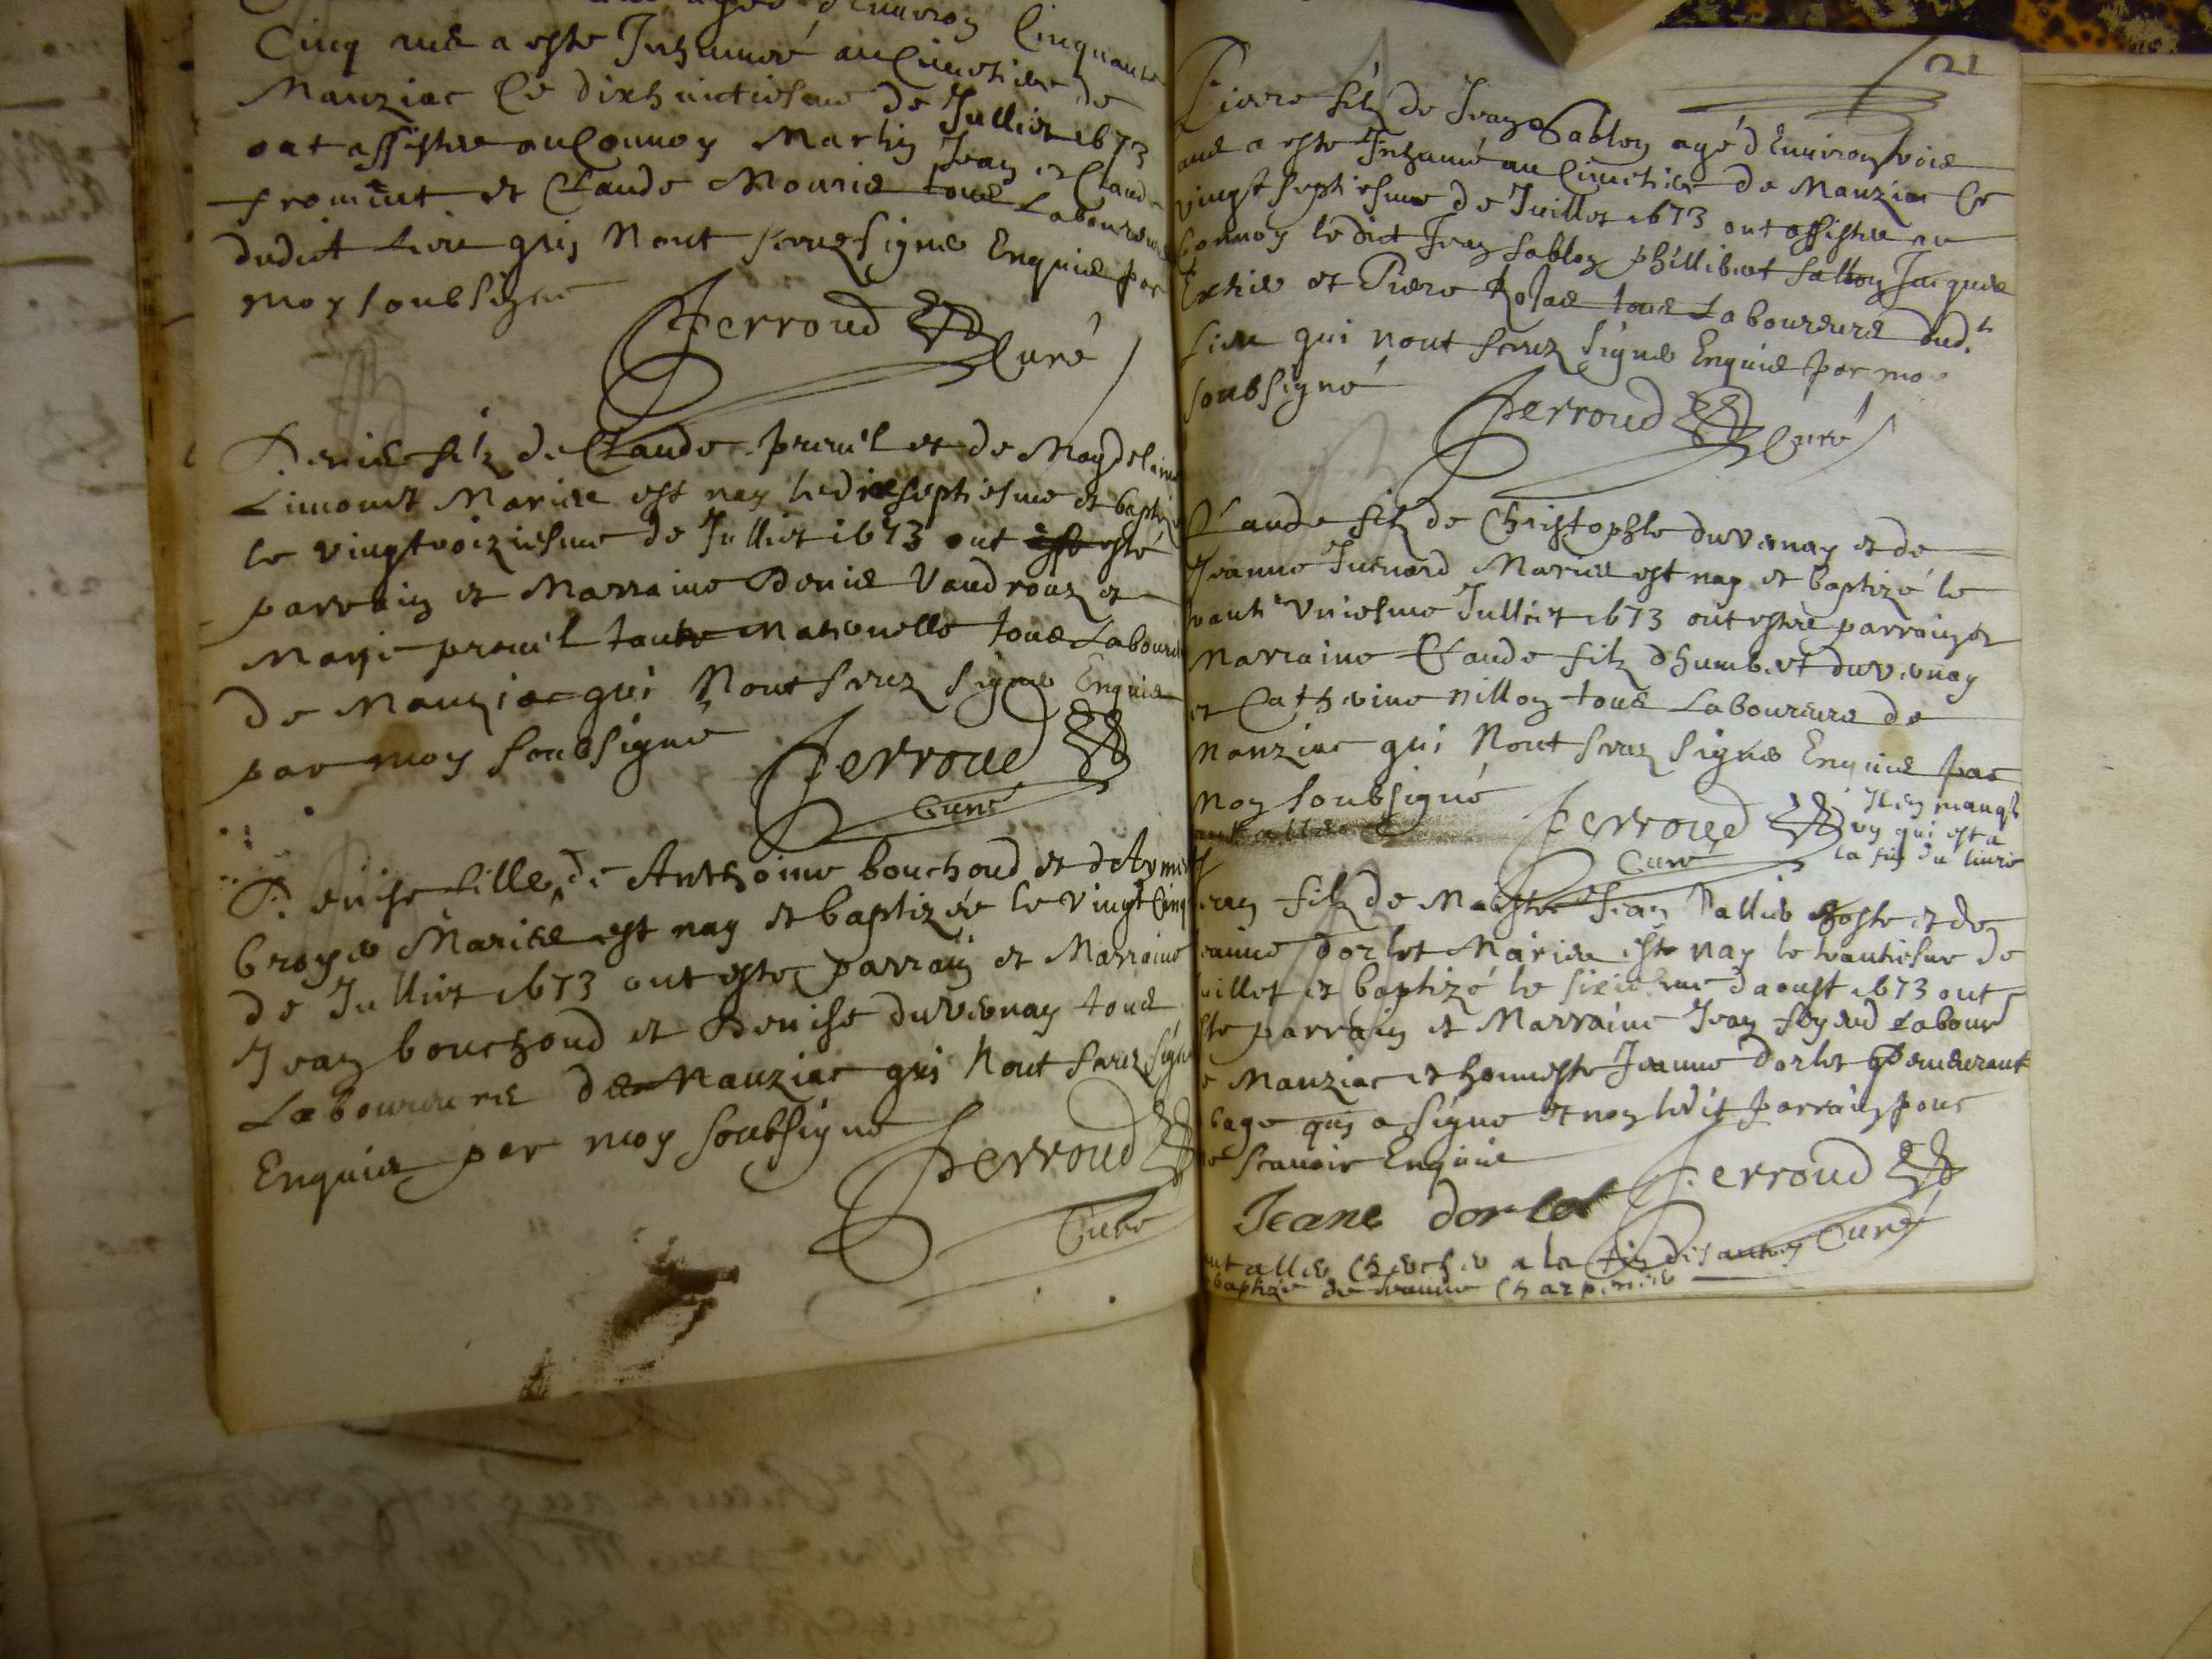 aagé d'Enuiron Cinquante
Cinq ans a este Inhumé au Cimetiere de
Manziac le dixhuictiesme de Julliet 1673
ont assistee au Connoy Martin Jean et Claude
froment et Claude Mouris tous Laboureurs
dudict Lieu qui Nont sceuz signe Enquis par
moy soubsigne
Ferroud Curé
Denis filz de Claude preuil et de Magdelaine
Limonet Maries est nay le dixseptiesme et baptizé
le vingtroiziesme de Julliet 1673 ont esté
parrain et Marraine Denis Vaudrouz et
Marie preuil tante Maternelle tous Labour
de Manziac qui Nont sceuz signe Enquis
par moy soubsigné
Ferroud
Curé
Denise fille de Anthoine bouchoud et de
broye Maries est nay et baptizée le vingt Cinq
de Julliet 1673 ont este parrain et Marraine
Jean bouchoud et Denise duvernay tous
Laboureurs de Manziac qui Nont sceuz signe
Enquis par moy soubsigné
Ferroud
Curé
21
Pierre filz de Jean Sablon agé d'Enuiron trois
ans a este Inhumé au Cimetiere de Manziac le
vingt septiesme de Juillet 1673 ont assistee au
Connoy ledict Jean Sablon phillibert Sablon Jacques
et Piere tous Laboureurs dud.t
Lieu qui nont sceuz signe Enquis par moy
soubsigné
Ferroud Curé
Claude filz de Christophle duvernay et de
Jeanne Maries est nay et baptizé le
trante Vniesme Julliet 1673 ont estee parrain et
Marraine Claude filz d'humbert duvernay
et Catherine nillon tous Laboureurs de
Manziac qui Nont sceuz signe Enquis par
Moy soubsigné
Ferroud
Curé
Il en manque
vn qui est a
la fin du liure
Jean filz de Maistre Jean Pallie hoste et de
Jeanne dorlet Maries est nay le trantiesme de
Juillet et baptizé le sixiesme d'aoust 1673 ont
este parrain et Marraine Jean Labour
de Manziac et honneste Jeanne dorlet demeurant
bage qui a signe et non ledit parrain pour
ne scauoir Enquis
Ferroud
Jeane dorlet
Curé
aller chercher a la fin
baptize de Jeanne Charpentie